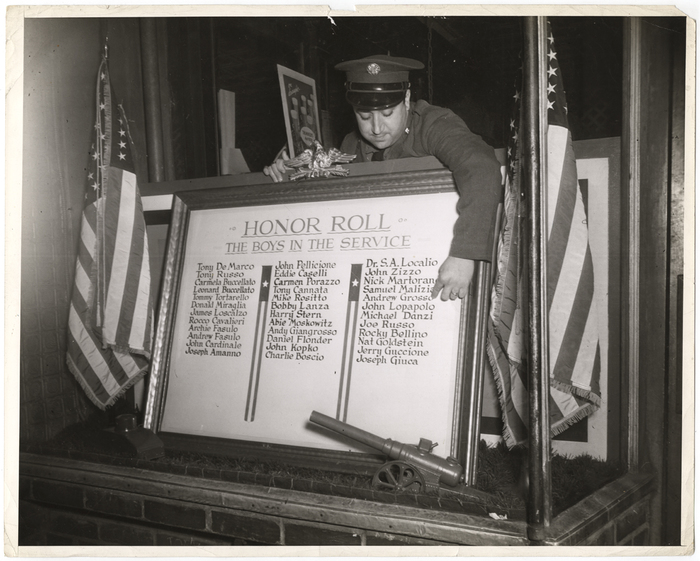 HONOR ROLL
THE BOYS IN THE SERVICE
Tony De Marco
Tony Russo
Carmela Buccellato
Leonard Buccellato
Tommy Tortarello
Donald Miraglia
James Loscalzo
Rocco Cavalieri
Archie Fasulo
Andrew Fasulo
John Cardinale
Joseph Amanno
John Pellicione
Eddie Caselli
Carmen Porazzo
Tony Cannata
Mike Rositto
Bobby Lanza
Harry Stern
Abie Moskowitz
Andy Giangrosso
Daniel Flonder
John Kopko
Charlie Boscio
Dr. S.A. Localio
John Zizzo
Nick Martoran
Samuel Malizia
Andrew Grosso
John Lopapolo
Michael Danzi
Joe Russo
Rocky Bellino
Nat Goldstein
Jerry Guccione
Joseph Giuca